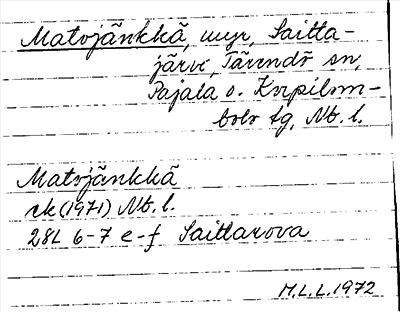 Matojänkkä, myr, Saitta-
järve, Tärendö sn,
Pajala o. Korpilom-
bolo tg, Nb. l.
Matojänkkä
rk (1971) Nb. l.
28L 6-7 e-f Saittarova
M.L.L. 1972